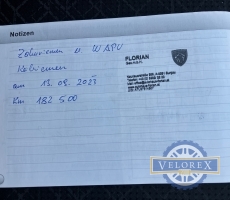 Notizen
Zahnriemen u WAPU
Keilriemen
am 13.09.2023
Km 182 500
FLORIAN
VELOREX